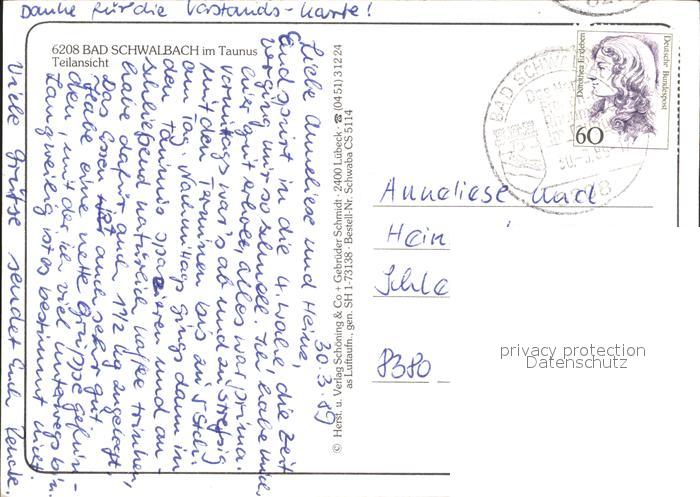 Danke für die Vorstands-Karte!
6208 BAD SCHWALBACH im Taunus
Teilansicht
30.3.89
Liebe Anneliese und Heinz,
Endspurt in die 4. Woche, die Zeit
verging nur so schnell. Ich habe mich
hier gut erholt, alles war prima.
Vormittags war's ab und zu stressig
mit den Terminen bis zu 5 Std.
am Tag. Nachmittags gings dann in
den Taunus spazieren und an-
schließend natürlich Kaffee trinken,
habe dafür auch 1 1/2 kg zugelegt,
das Essen ist auch sehr gut.
Habe eine nette Gruppe gefun-
den, mit der ich viel unterwegs bin.
Langweilig ist es bestimmt nicht.
Viele Grüße sendet Euch
© Herst. u. Verlag Schöning & Co + Gebrüder Schmidt · 2400 Lübeck · ☎ (04 51) 3 12 24
as Luftaufn., gen. SH 1-73138 · Bestell-Nr. Schwaba CS 5114
BAD SCHW
30.-3.89
6208
Dorothea Erxleben
Deutsche Bundespost
60
Anneliese und
Hein
Schle
8380
privacy protection
Datenschutz